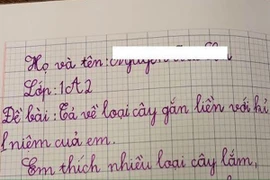 Họ và tên:
Lớp: 1A2
Đề bài: Tả về loại cây gắn liền với kỉ
1 niệm của em.
Em thích nhiều loại cây lắm,